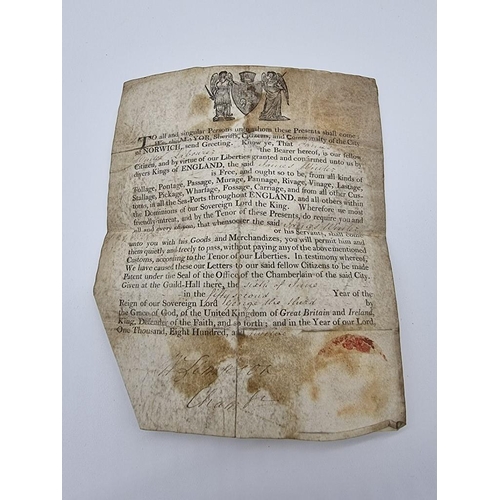 TO all and singular Persons unto whom these Presents shall come
MAYOR, Sheriffs, Citizens, and Commonalty of the City
NORWICH, send Greeting. Know ye, That
the Bearer hereof, is our fellow
Citizen, and by virtue of our Liberties granted and confirmed unto us by
divers Kings of ENGLAND, the said
is Free, and ought so to be, from all kinds of
Tollage, Pontage, Passage, Murage, Pannage, Rivage, Vinage, Lastage,
Stallage, Pickage, Wharfage, Fossage, Carriage, and from all other Cus-
toms, in all the Sea-Ports throughout ENGLAND, and all others within
the Dominions of our Sovereign Lord the King. Wherefore we most
friendly intreat, and by the Tenor of these Presents, do require you and
all and every of you, that whensoever the said
or his Servants, shall come
unto you with his Goods and Merchandizes, you will permit him and
them quietly and freely to pass, without paying any of the abovementioned
Customs, according to the Tenor of our Liberties. In testimony whereof,
We have caused these our Letters to our said fellow Citizens to be made
Patent under the Seal of the Office of the Chamberlain of the said City.
Given at the Guild-Hall there, the of June
in the Year of the
Reign of our Sovereign Lord George the Third by
the Grace of God, of the United Kingdom of Great Britain and Ireland,
King, Defender of the Faith, and so forth; and in the Year of our Lord
One Thousand, Eight Hundred, and